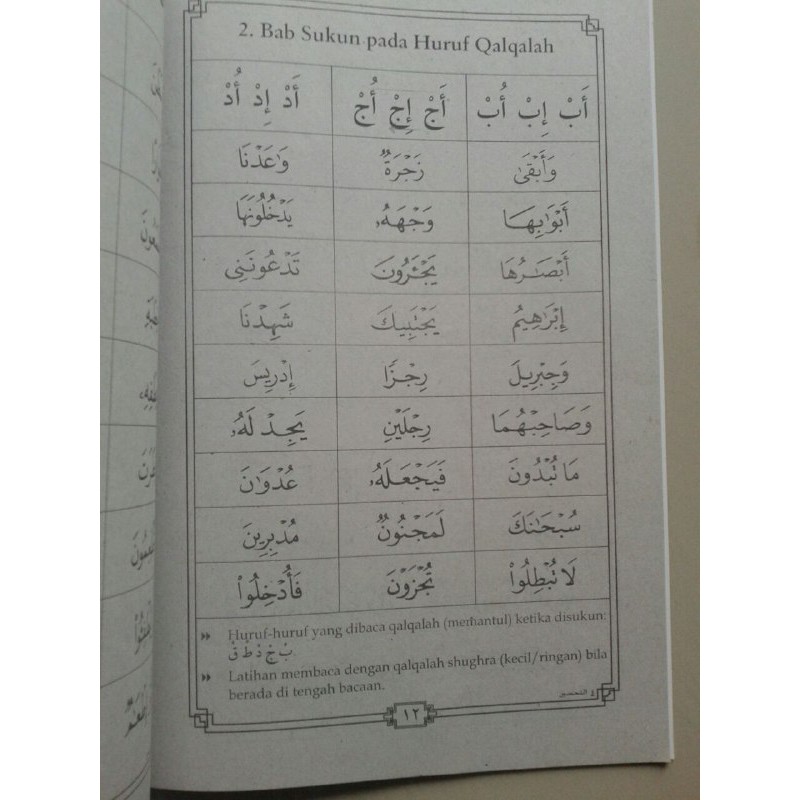 2. Bab Sukun pada Huruf Qalqalah
أَبْ إِبْ أُبْ أَجْ إِجْ أُجْ أَدْ إِدْ أُدْ
وَأَبْقَىٰ زَجْرَةٌ وَٰعَدْنَا
أَبْوَٰبِهَا وَجْهَهُۥ يَدْخُلُونَهَا
أَبْصَـٰرُهَا يَجْـَٔرُونَ تَدْعُونَنِى
إِبْرَٰهِيمُ يَجْتَبِيكَ شَهِدْنَا
وَجِبْرِيلَ رِجْزًا إِدْرِيسَ
وَصَاحِبْهُمَا رِجْلَيْنِ يَجِدْ لَهُۥ
مَا تُبْدُونَ فَيَجْعَلَهُۥ عُدْوَٰنَ
سُبْحَـٰنَكَ لَمَجْنُونٌ مُدْبِرِينَ
لَا تُبْطِلُوا۟ تُجْزَوْنَ فَأُدْخِلُوا۟
Huruf-huruf yang dibaca qalqalah (memantul) ketika disukun:
بْ جْ دْ طْ قْ
Latihan membaca dengan qalqalah shughra (kecil/ringan) bila
berada di tengah bacaan.
١٢